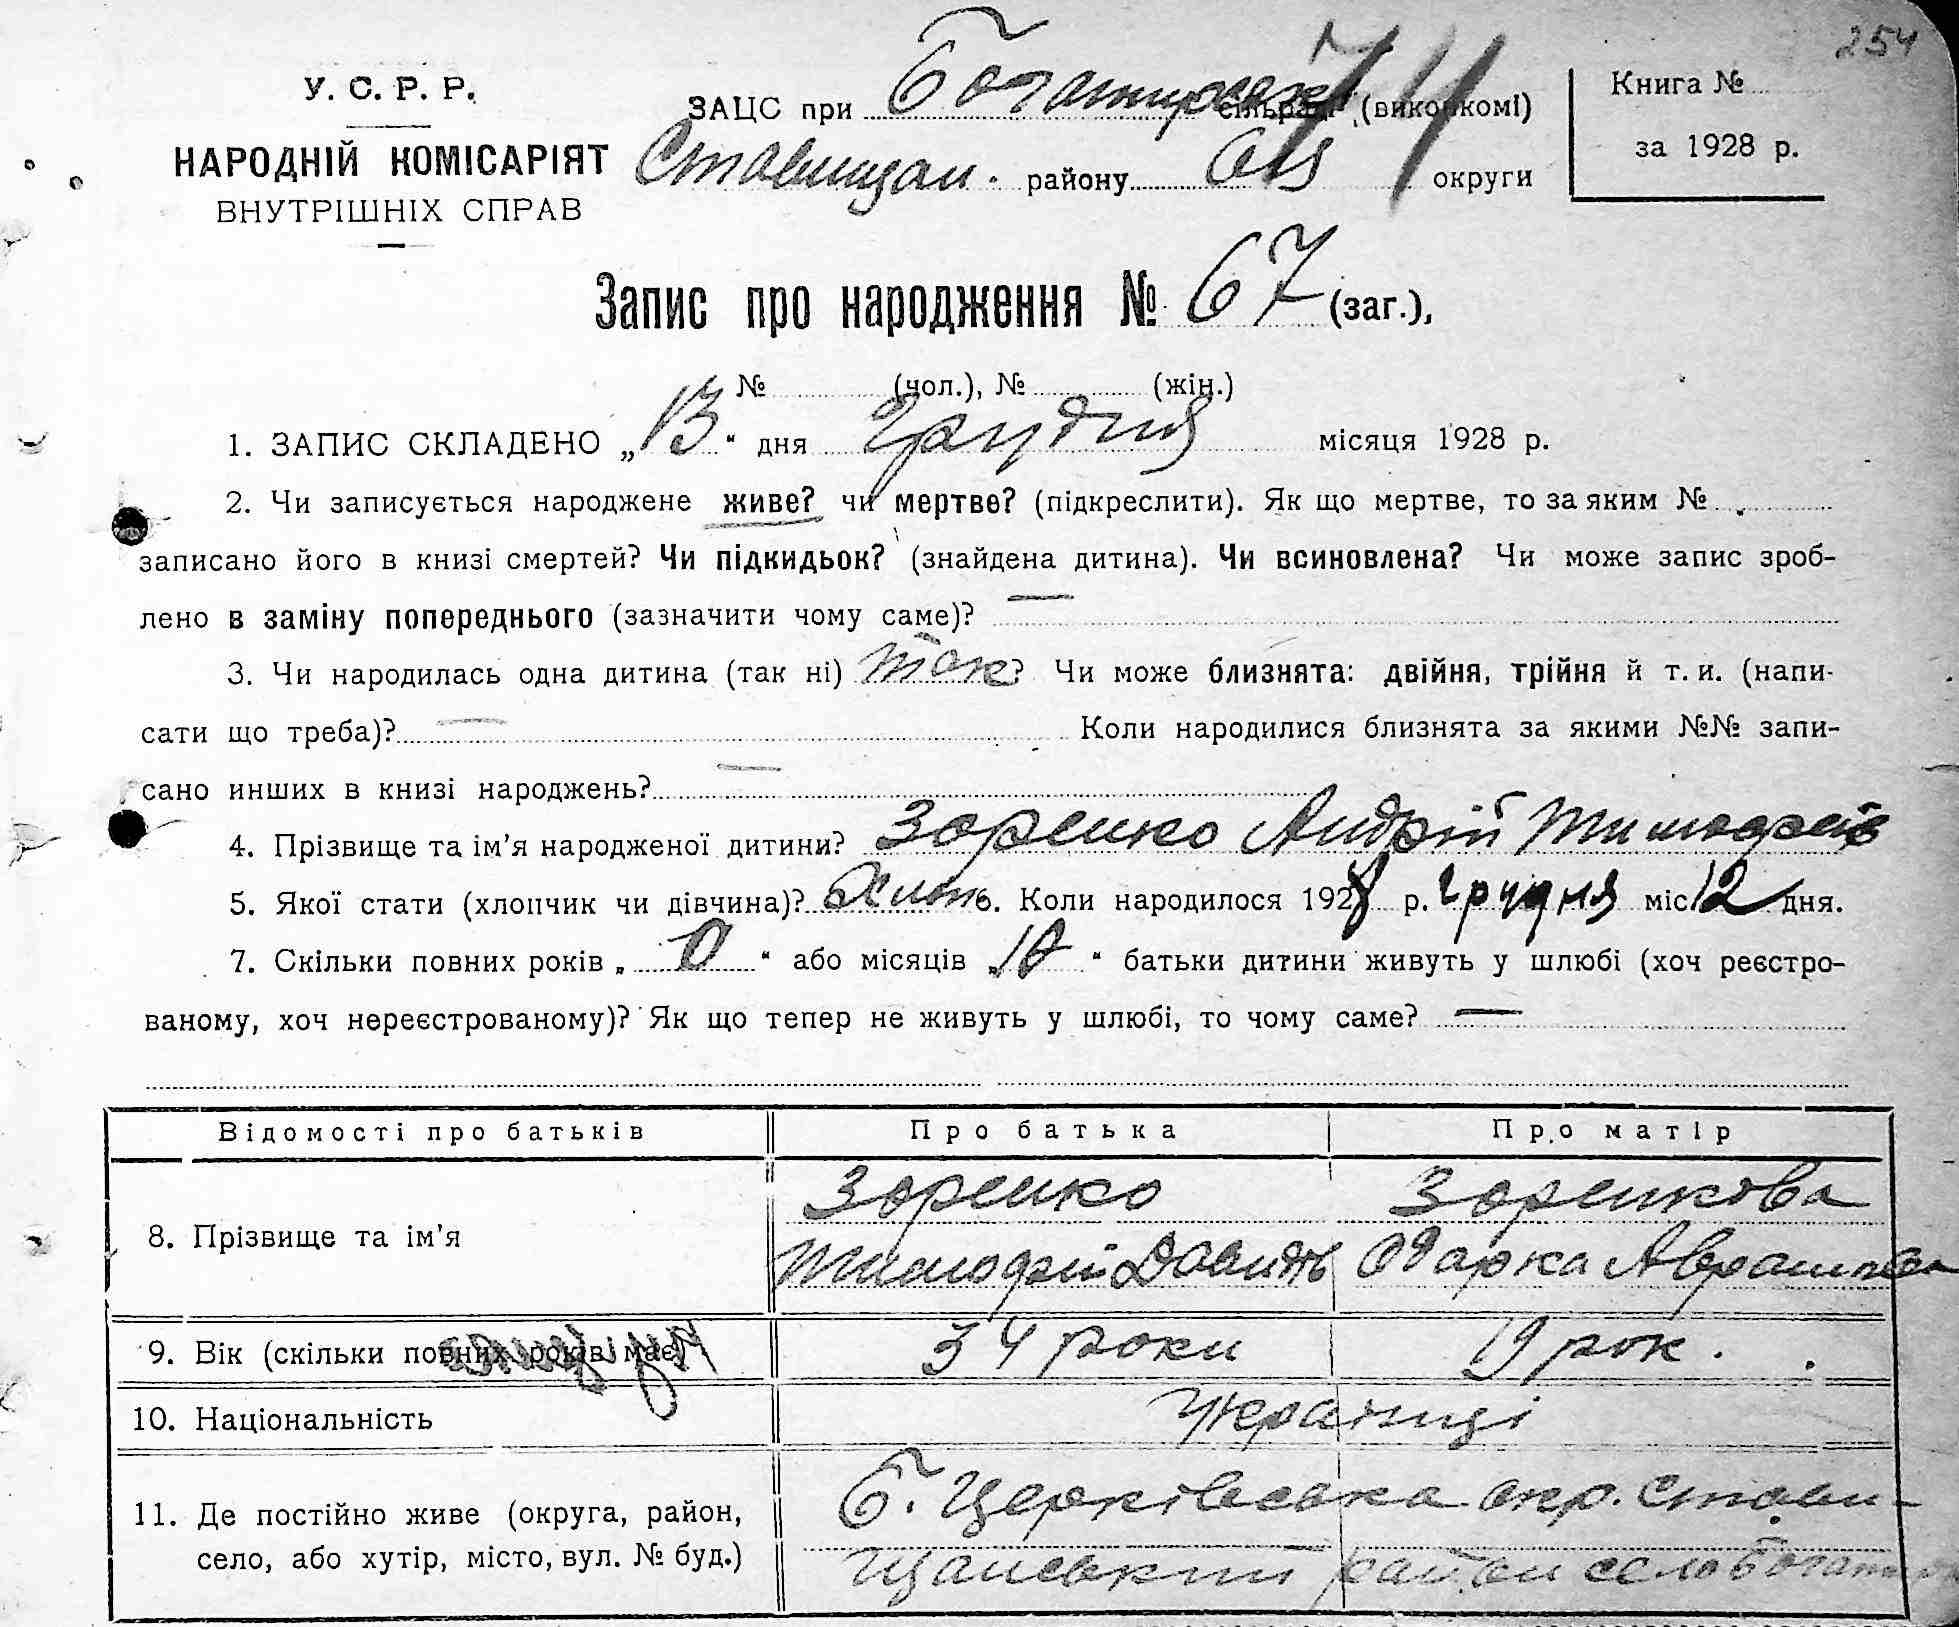 254
У. С. Р. Р.
НАРОДНІЙ КОМІСАРІЯТ
ВНУТРІШНІХ СПРАВ
ЗАЦС при Богатирськ сільраді (виконкомі)
Ставищан. району округи
Книга №
за 1928 р.
Запис про народження № 67 (заг.),
№ (чол.), № (жін.)
1. ЗАПИС СКЛАДЕНО „13“ дня Грудня місяця 1928 р.
2. Чи записується народжене живе? чи мертве? (підкреслити). Як що мертве, то за яким №
записано його в книзі смертей? Чи підкидьок? (знайдена дитина). Чи всиновлена? Чи може запис зроб-
лено в заміну попереднього (зазначити чому саме)? —
3. Чи народилась одна дитина (так ні) так? Чи може близнята: двійня, трійня й т. и. (напи-
сати що треба)? — Коли народилися близнята за якими №№ запи-
сано инших в книзі народжень? —
4. Прізвище та ім’я народженої дитини? Зоренко Андрій Тимофеїв
5. Якої стати (хлопчик чи дівчина)? Хлоп. 6. Коли народилося 1928 р. грудня міс. 12 дня.
7. Скільки повних років „0“ або місяців „10“ батьки дитини живуть у шлюбі (хоч реєстро-
ваному, хоч нереєстрованому)? Як що тепер не живуть у шлюбі, то чому саме? —
Відомості про батьків Про батька Про матір
8. Прізвище та ім’я
Зоренко Зоренкова
Тимофій Давидів Одарка Аврамівна
9. Вік (скільки повних років має) 34 роки 19 рок.
10. Національність Українці
11. Де постійно живе (округа, район,
село, або хутір, місто, вул. № буд.)
Б. Церківська окр. Стави-
щанський район село